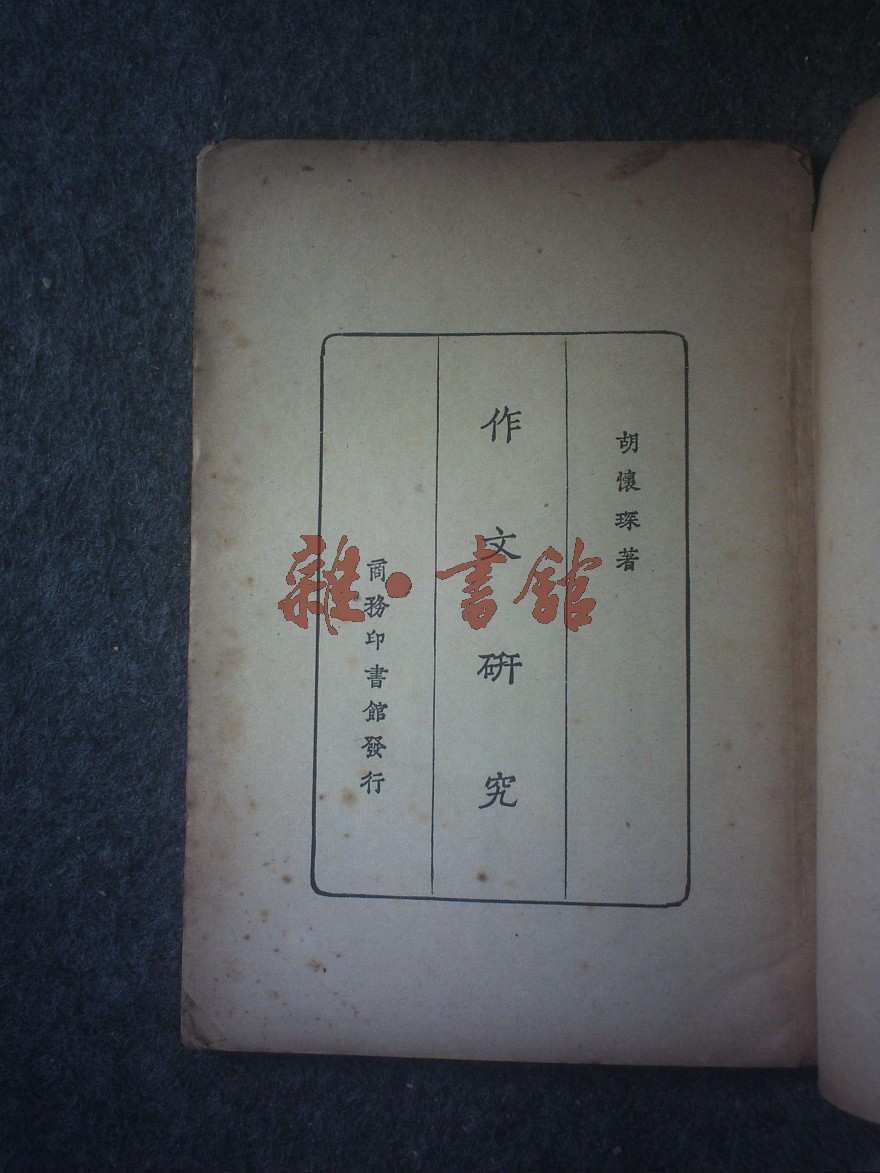 胡懷琛著
作文研究
商務印書館發行
雜·書館